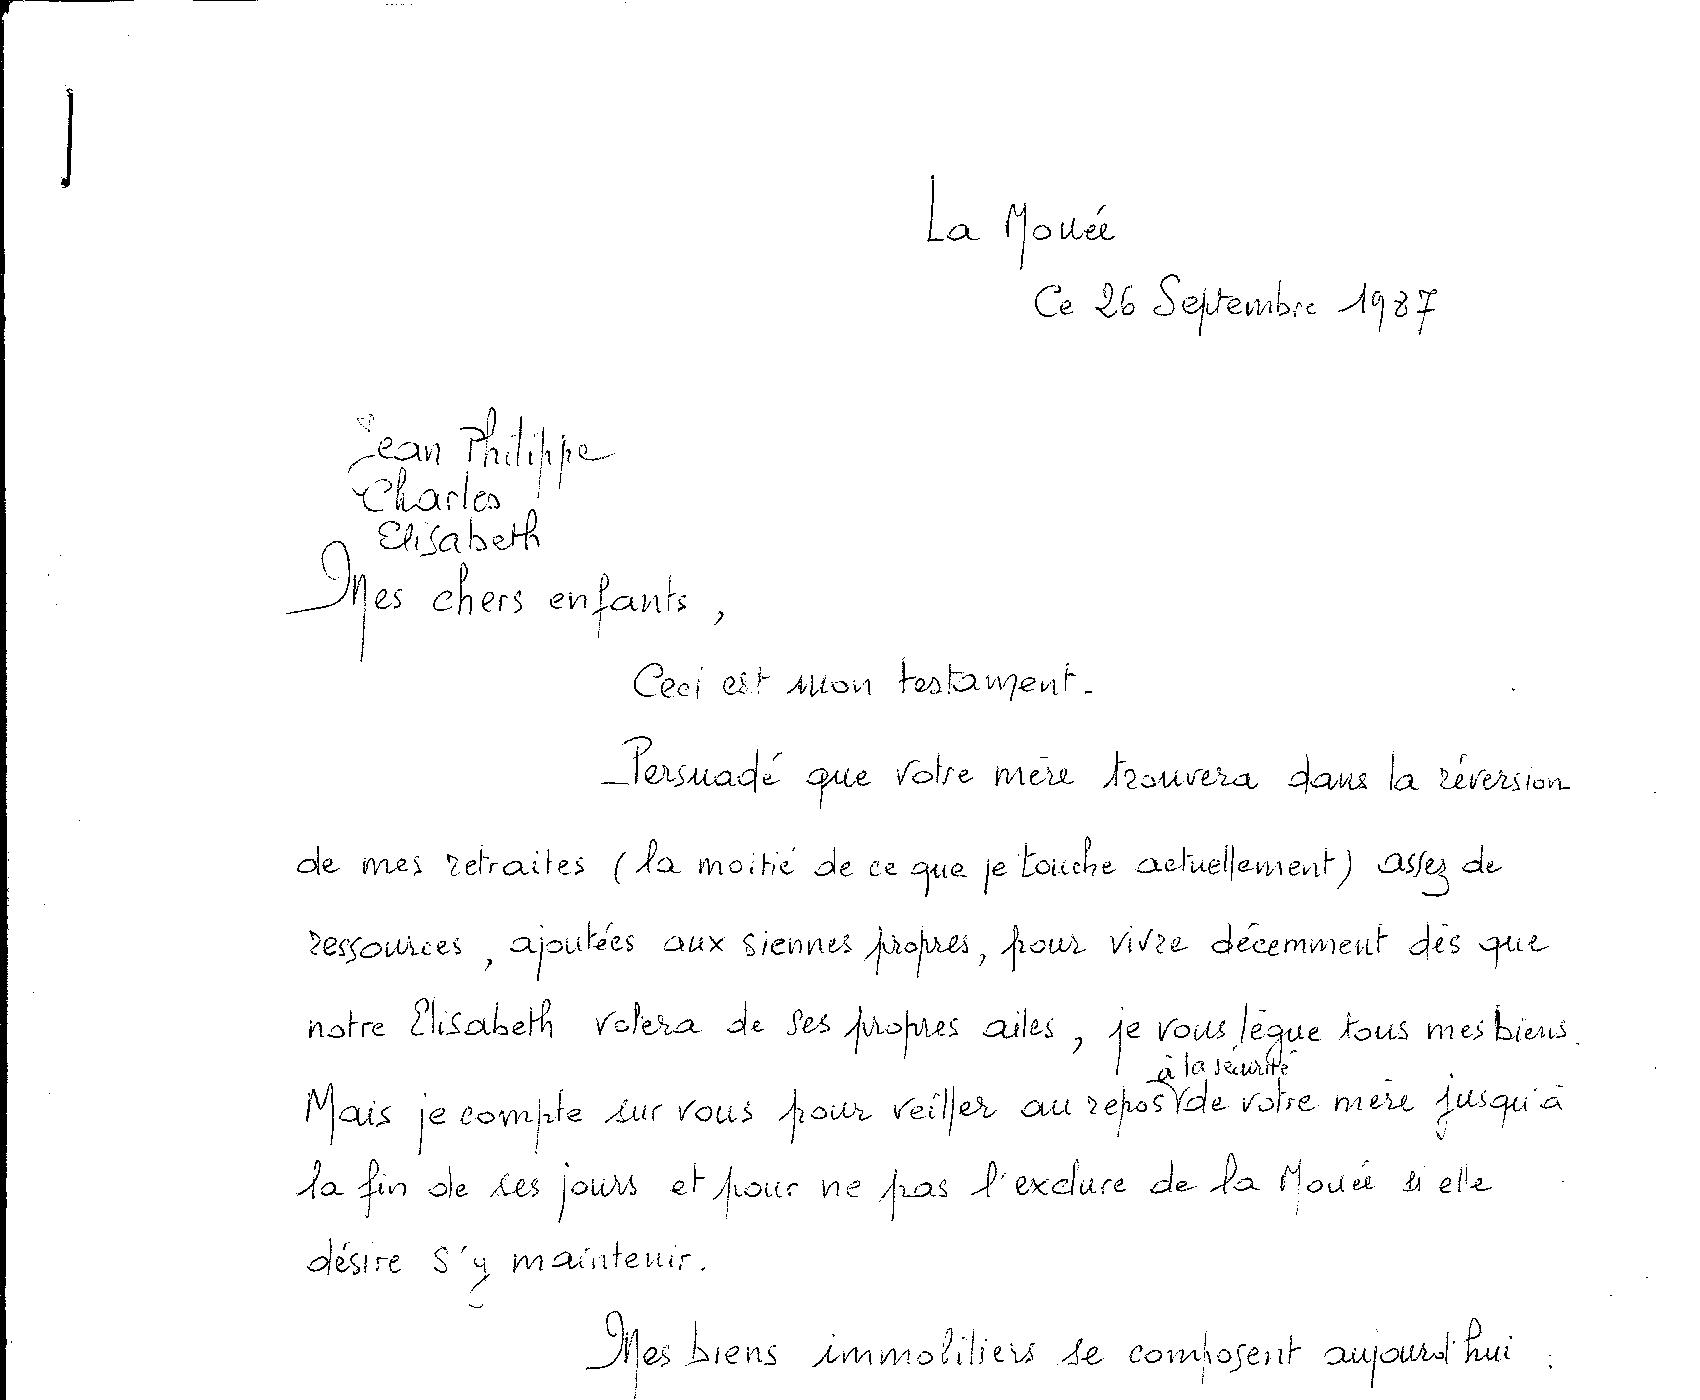 La Mouée
Ce 26 Septembre 1987
Jean Philippe
Charles
Elisabeth
Mes chers enfants,
Ceci est mon testament.
Persuadé que votre mère trouvera dans la réversion
de mes retraites (la moitié de ce que je touche actuellement) assez de
ressources, ajoutées aux siennes propres, pour vivre décemment dès que
notre Elisabeth volera de ses propres ailes, je vous lègue tous mes biens.
à la sécurité
Mais je compte sur vous pour veiller au repos de votre mère jusqu'à
la fin de ses jours et pour ne pas l'exclure de la Mouée si elle
désire s'y maintenir.
Mes biens immobiliers se composent aujourd'hui :